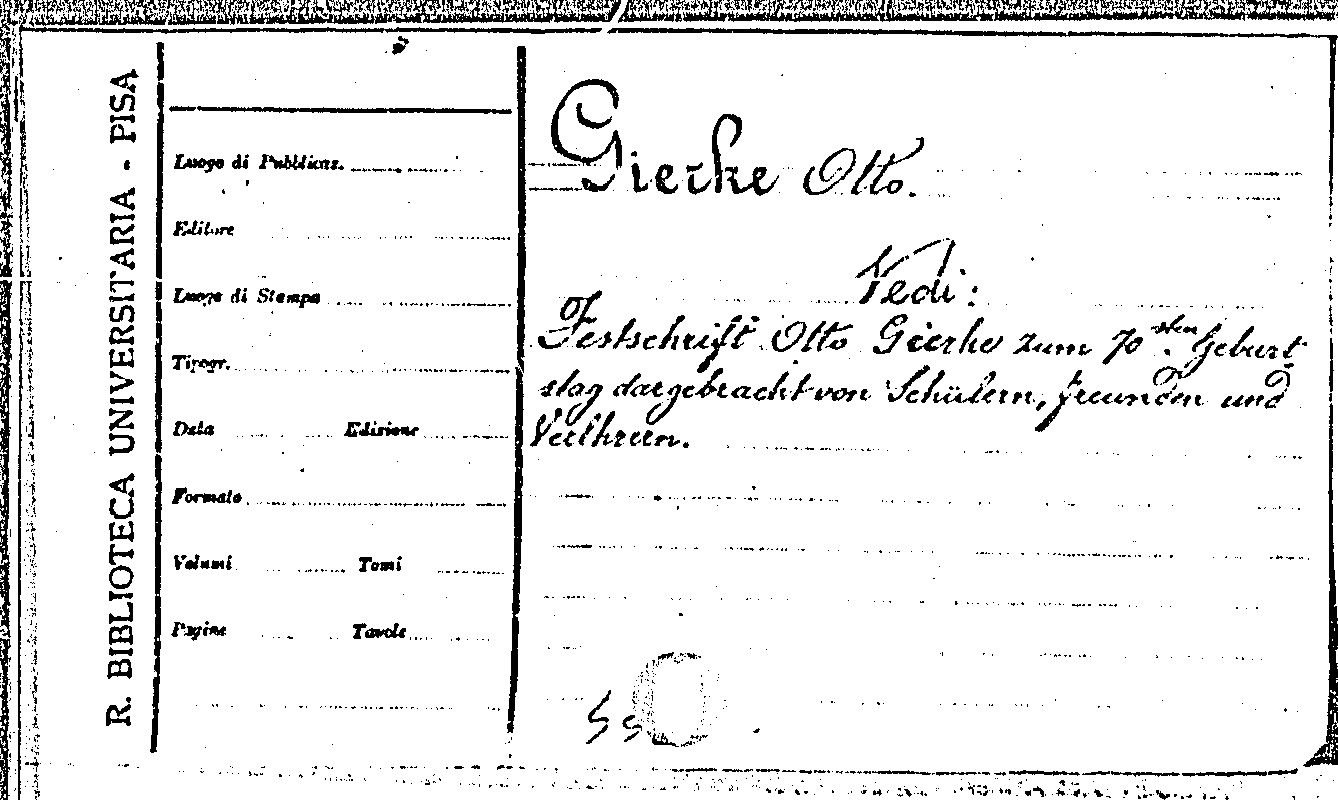 R. BIBLIOTECA UNIVERSITARIA - PISA
Luogo di Pubblicaz.
Editore
Luogo di Stampa
Tipogr.
Data Edizione
Formato
Volumi Tomi
Pagine Tavole
Gierke Otto.
Vedi:
Festschrift Otto Gierke zum 70sten. Geburt
stag dargebracht von Schülern, freunden und